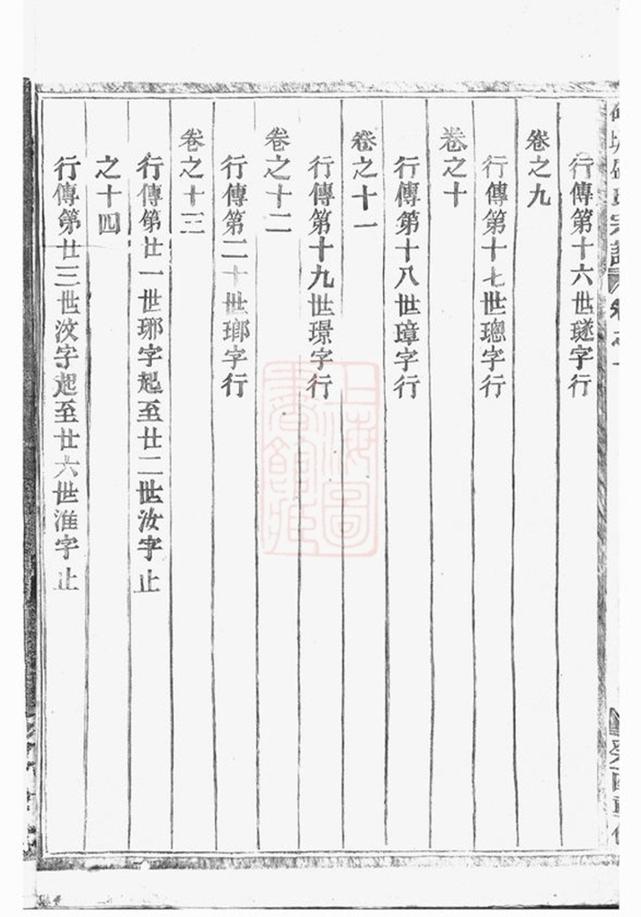 行傳第十六世璲字行
卷之九
行傳第十七世璁字行
卷之十
行傳第十八世璋字行
卷之十一
行傳第十九世璟字行
卷之十二
行傳第二十世瑯字行
卷之十三
行傳第廿一世琊字起至廿二世汝字止
之十四
行傳第廿三世汶字起至廿六世淮字止
上海圖
書館藏